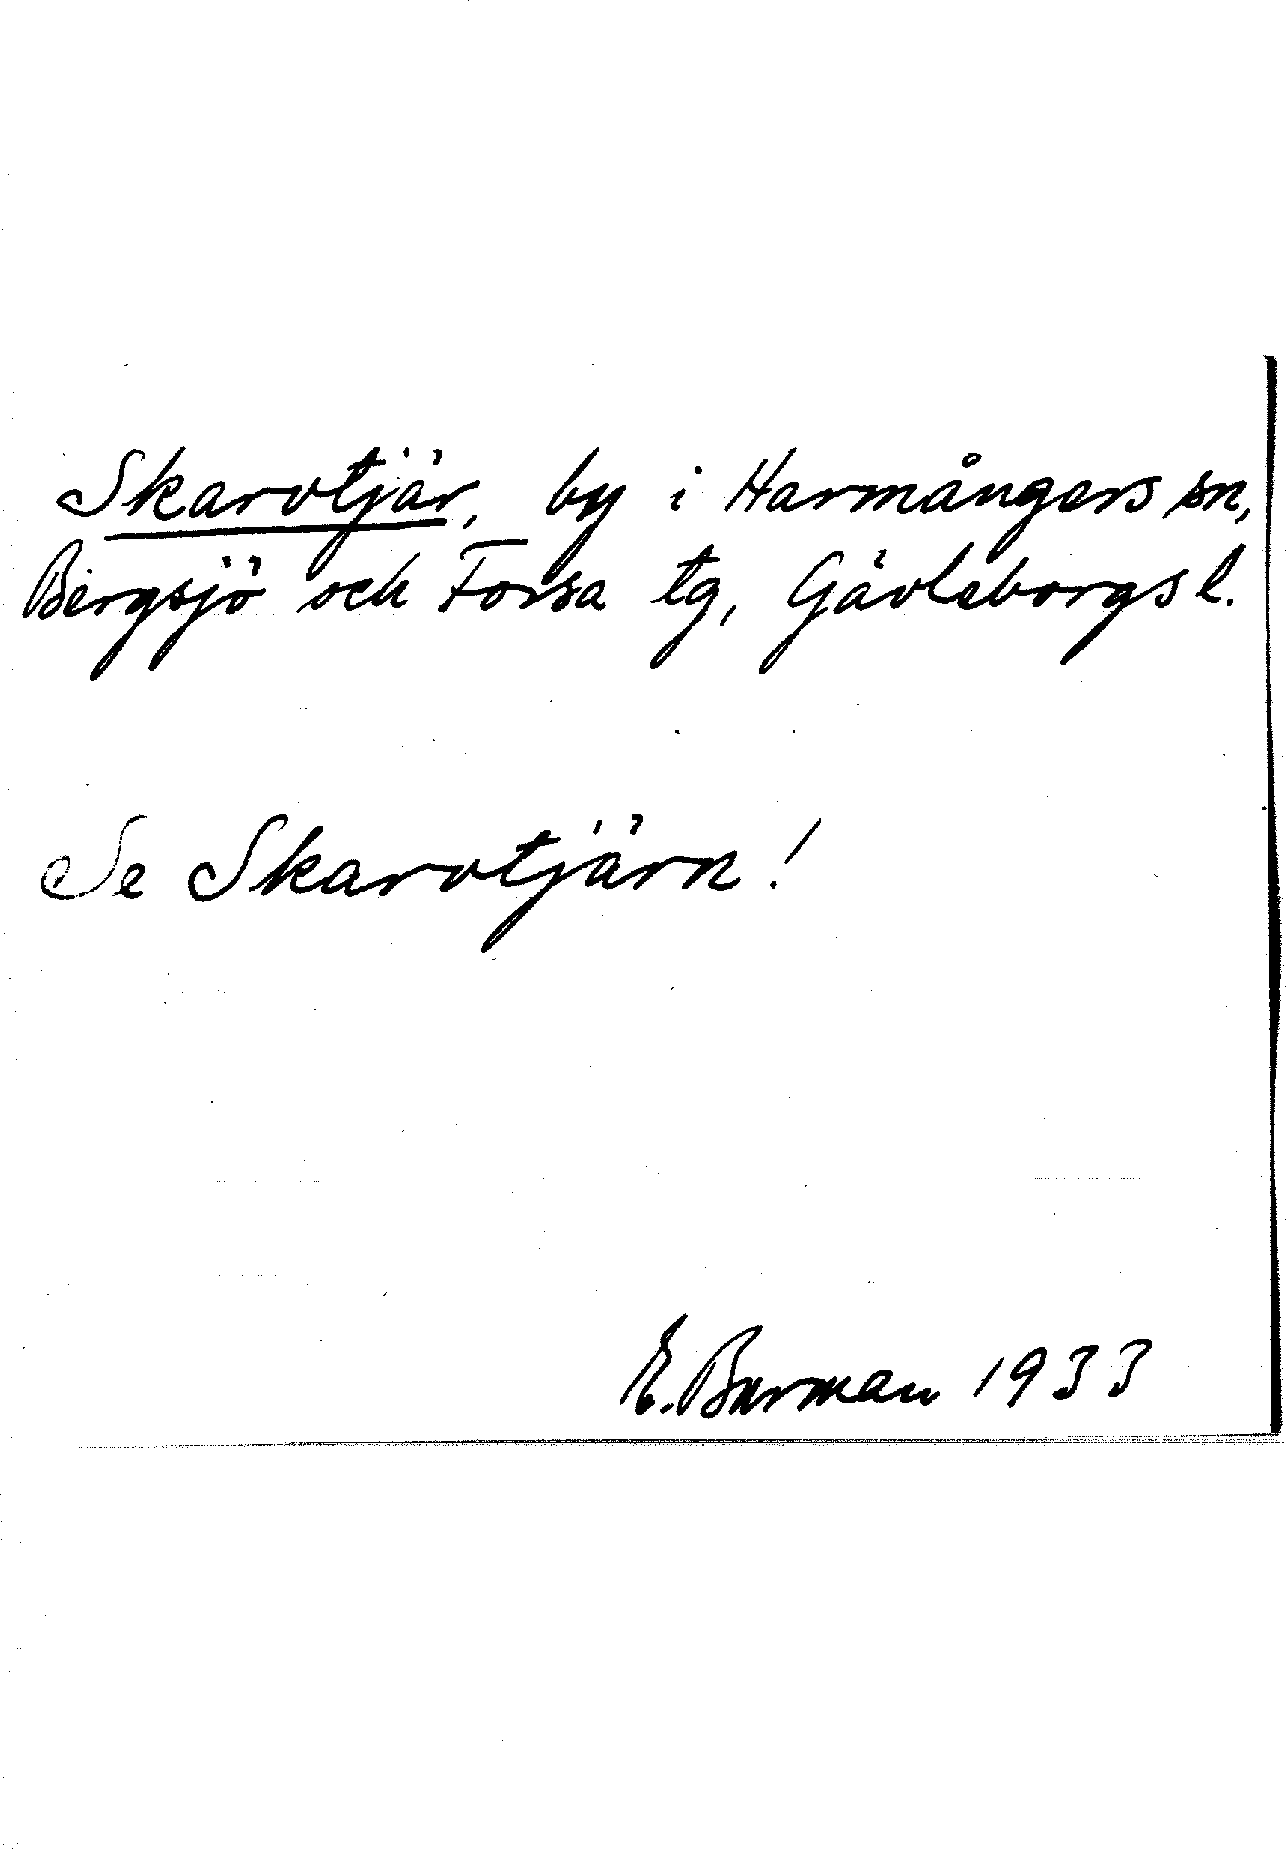 Skarvtjär, by i Harmångers sn,
Bergsjö och Forsa tg, Gävleborgs l.
Se Skarvtjärn!
E. Burman 1933